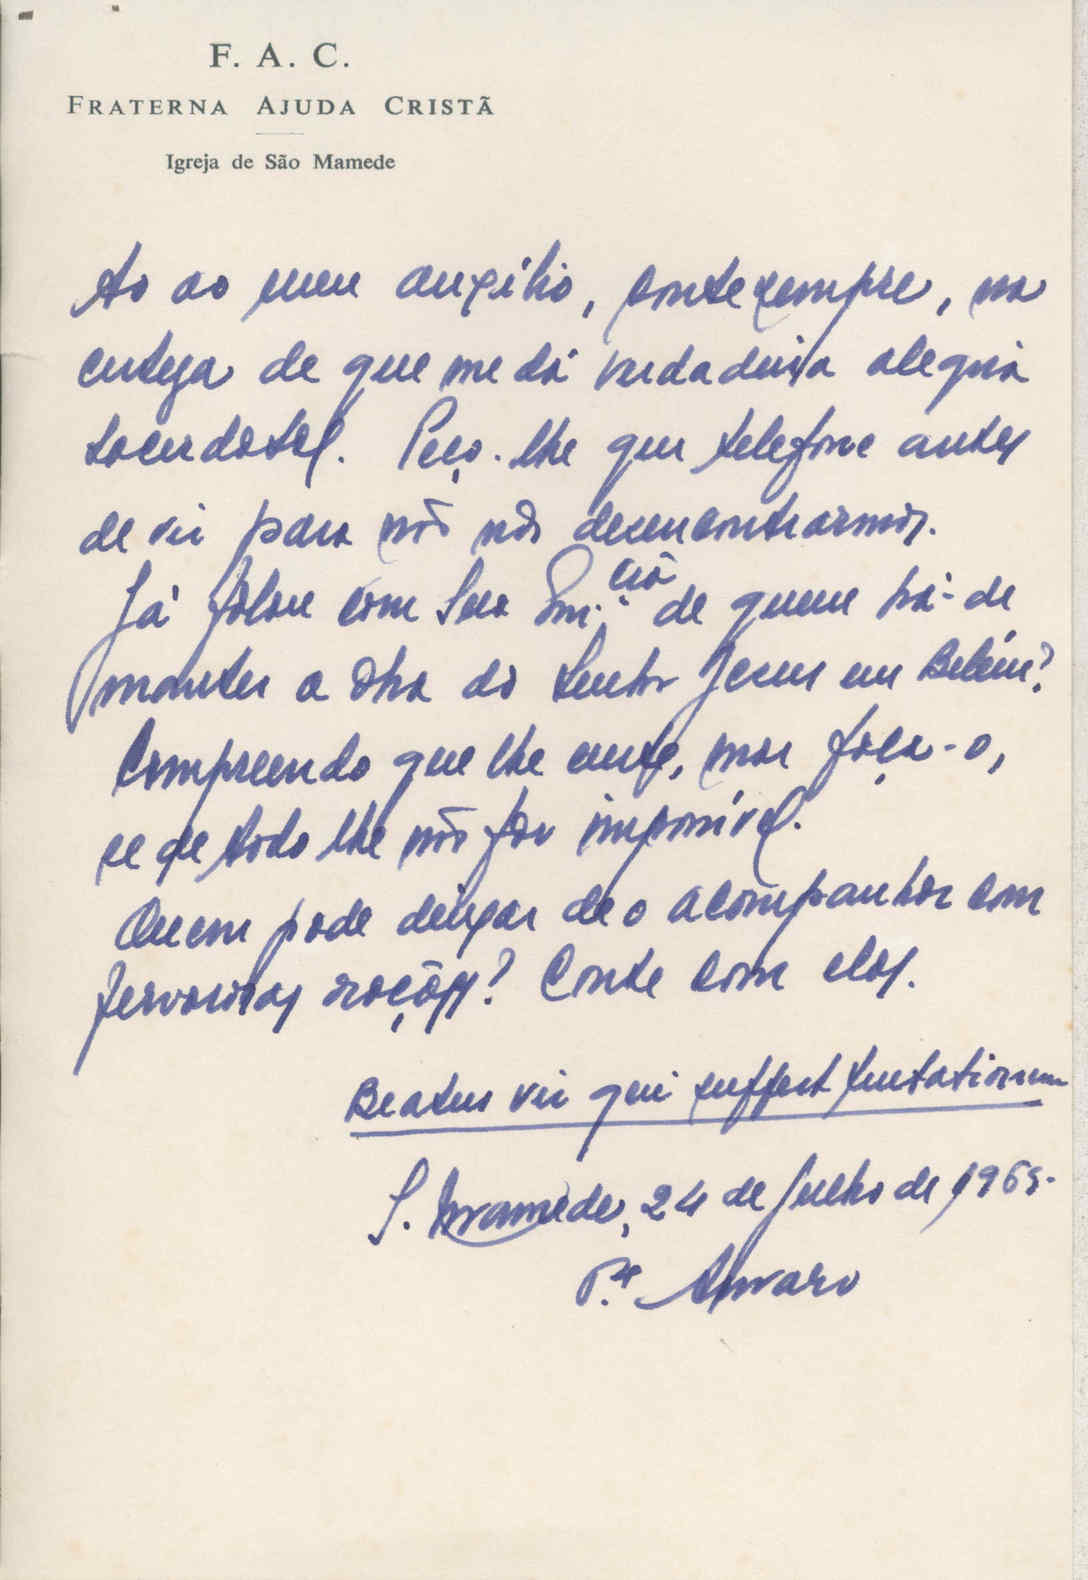 F. A. C.
FRATERNA AJUDA CRISTÃ
Igreja de São Mamede
ao meu auxílio, conte sempre, na
certeza de que me dá verdadeira alegria
sacerdotal. Peço-lhe que telefone antes
de vir para não nos desencontrarmos.
Já falou com Sua Em.cia de quem há-de
manter a obra do Senhor Jesus em Belém?
Compreendo que lhe custe, mas faça-o,
se de todo lhe não for impossível.
Quem pode deixar de o acompanhar com
fervorosas orações? Conte com elas.
Beatus vir qui suffert tentationem
S. Mamede, 24 de Julho de 1965.
P.e Alvaro